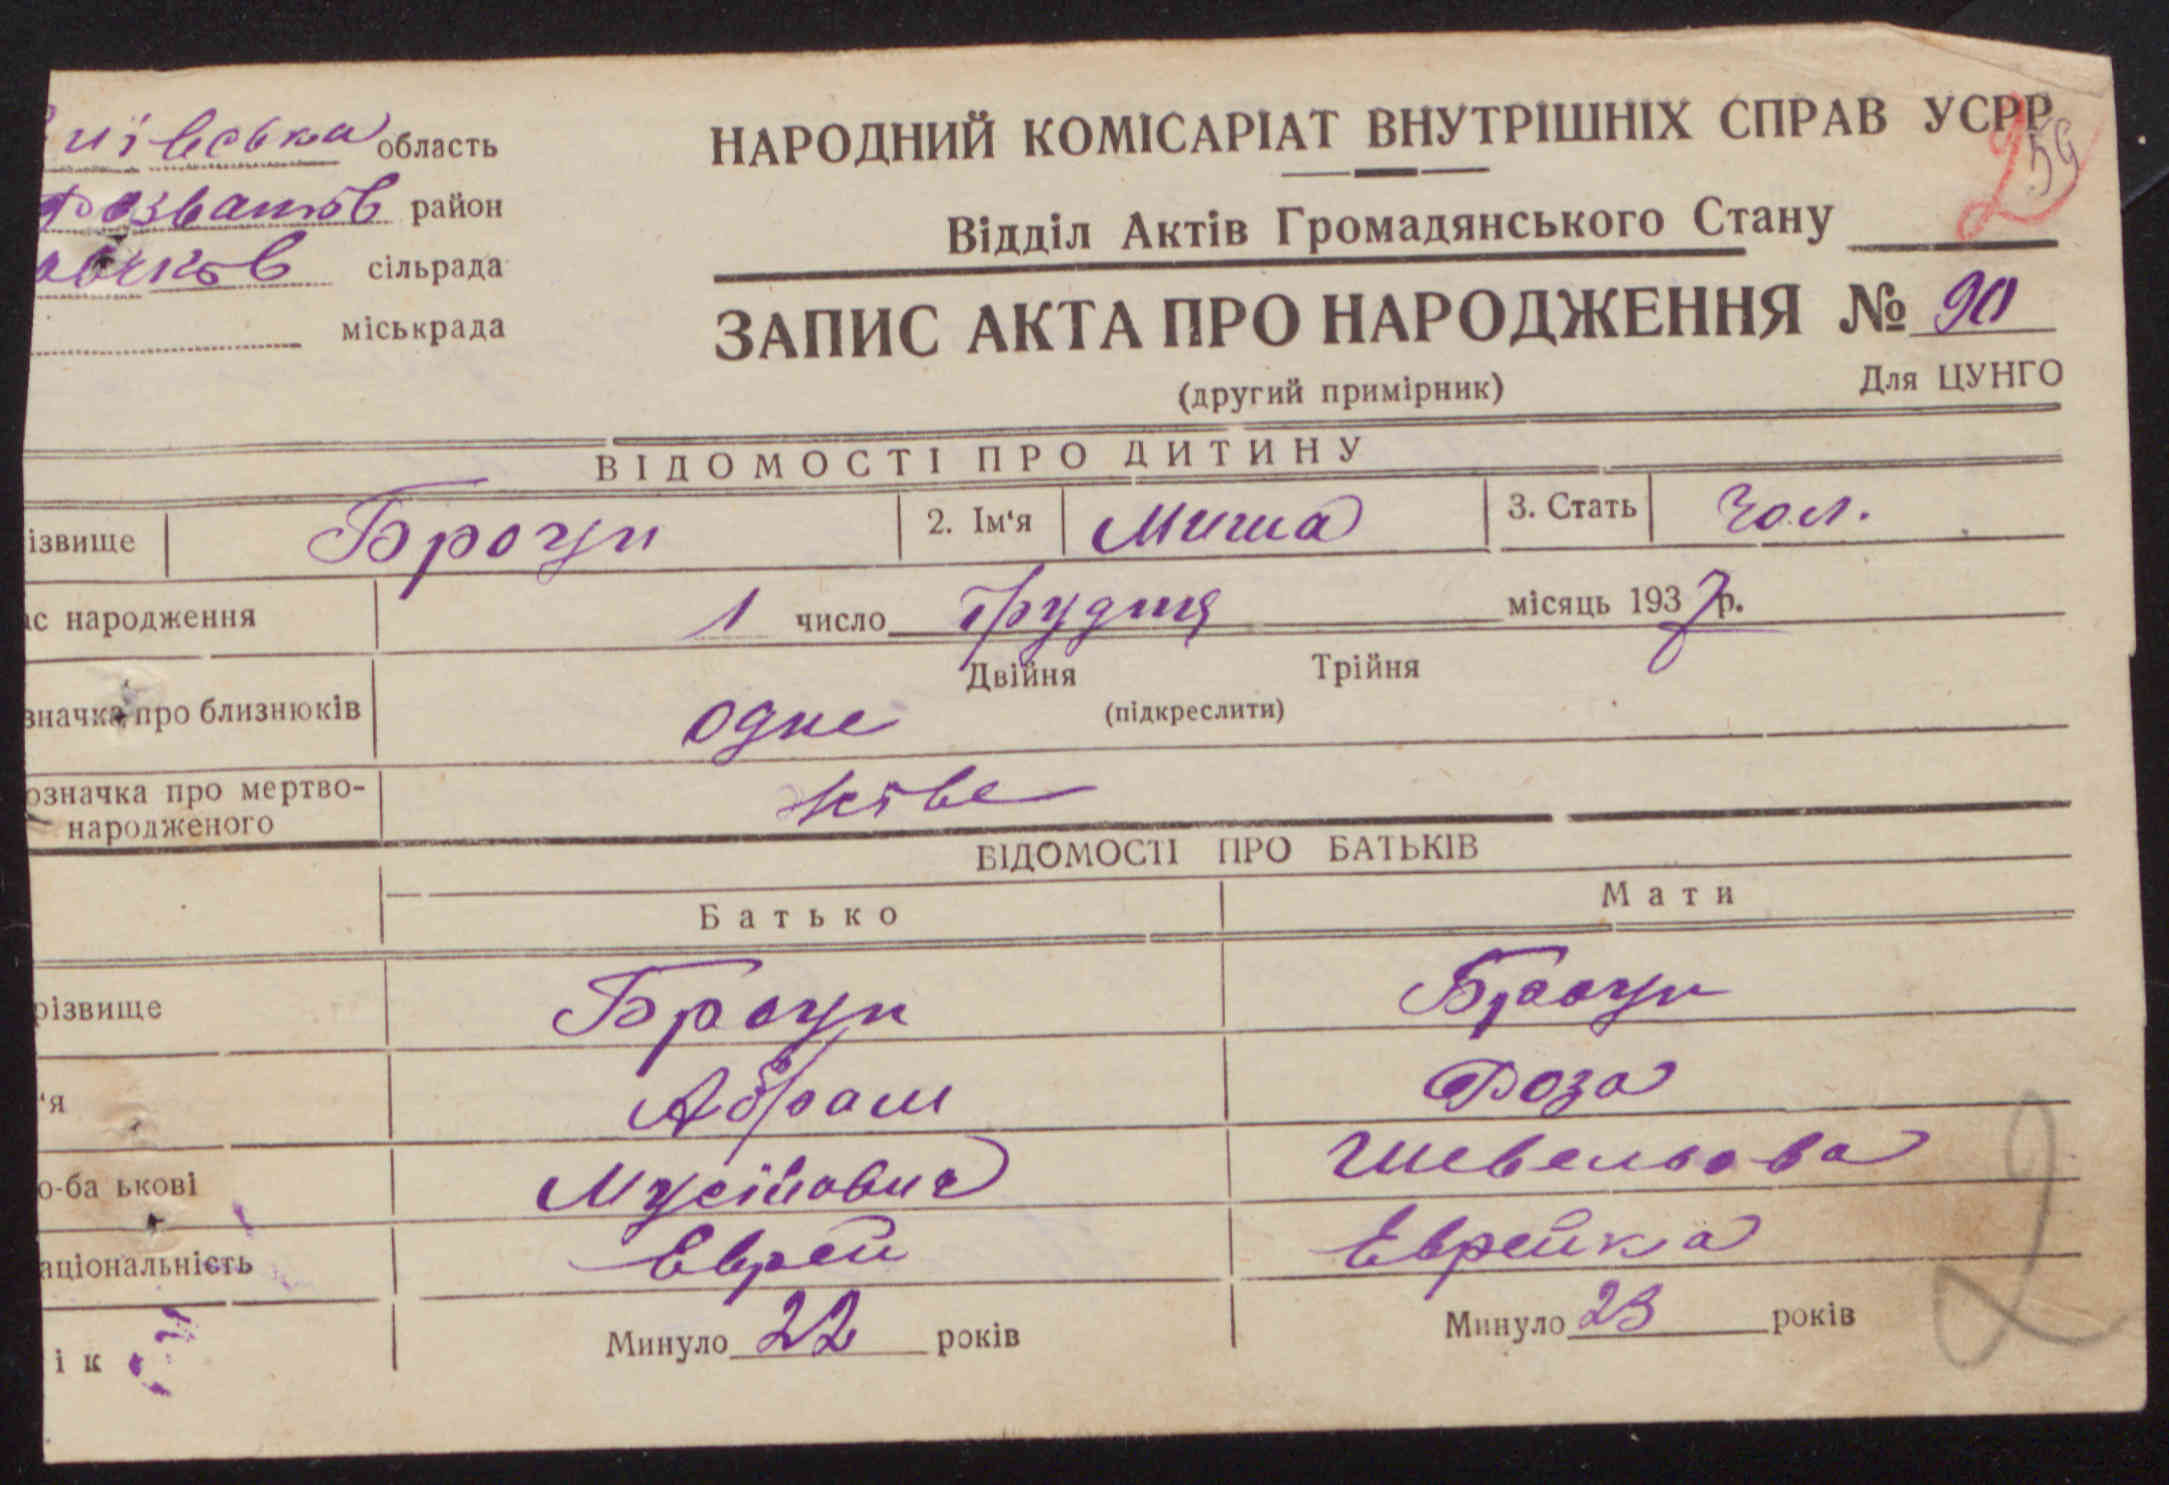 иївська область
Розватів район
сільрада
міськрада
НАРОДНИЙ КОМІСАРІАТ ВНУТРІШНІХ СПРАВ УСРР
59
Відділ Актів Громадянського Стану
ЗАПИС АКТА ПРО НАРОДЖЕННЯ № 90
(другий примірник) Для ЦУНГО
ВІДОМОСТІ ПРО ДИТИНУ
ізвище Броун 2. Ім'я Миша 3. Стать Чол.
ас народження 1 число Грудня місяць 1937 р.
значка про близнюків одне Двійня Трійня
(підкреслити)
означка про мертво-
народженого живе
ВІДОМОСТІ ПРО БАТЬКІВ
Батько Мати
різвище Броун Броун
'я Абрам Роза
о-ба ькові Мусійович Шевельова
аціональність Еврей Еврейка
ік Минуло 22 років Минуло 23 років
2